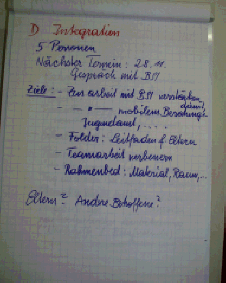 D Integration
5 Personen
Nächster Termin: 28.11.
Gespräch mit BM
Ziele: - Zusarbeit mit BM verstärken
- — " — mobilem damit
Jugendamt, ....
- Folder: Leitfaden f. Eltern
- Teamarbeit verbessern
- Rahmenbed: Material, Raum, ...
Eltern? Andre Betroffene?